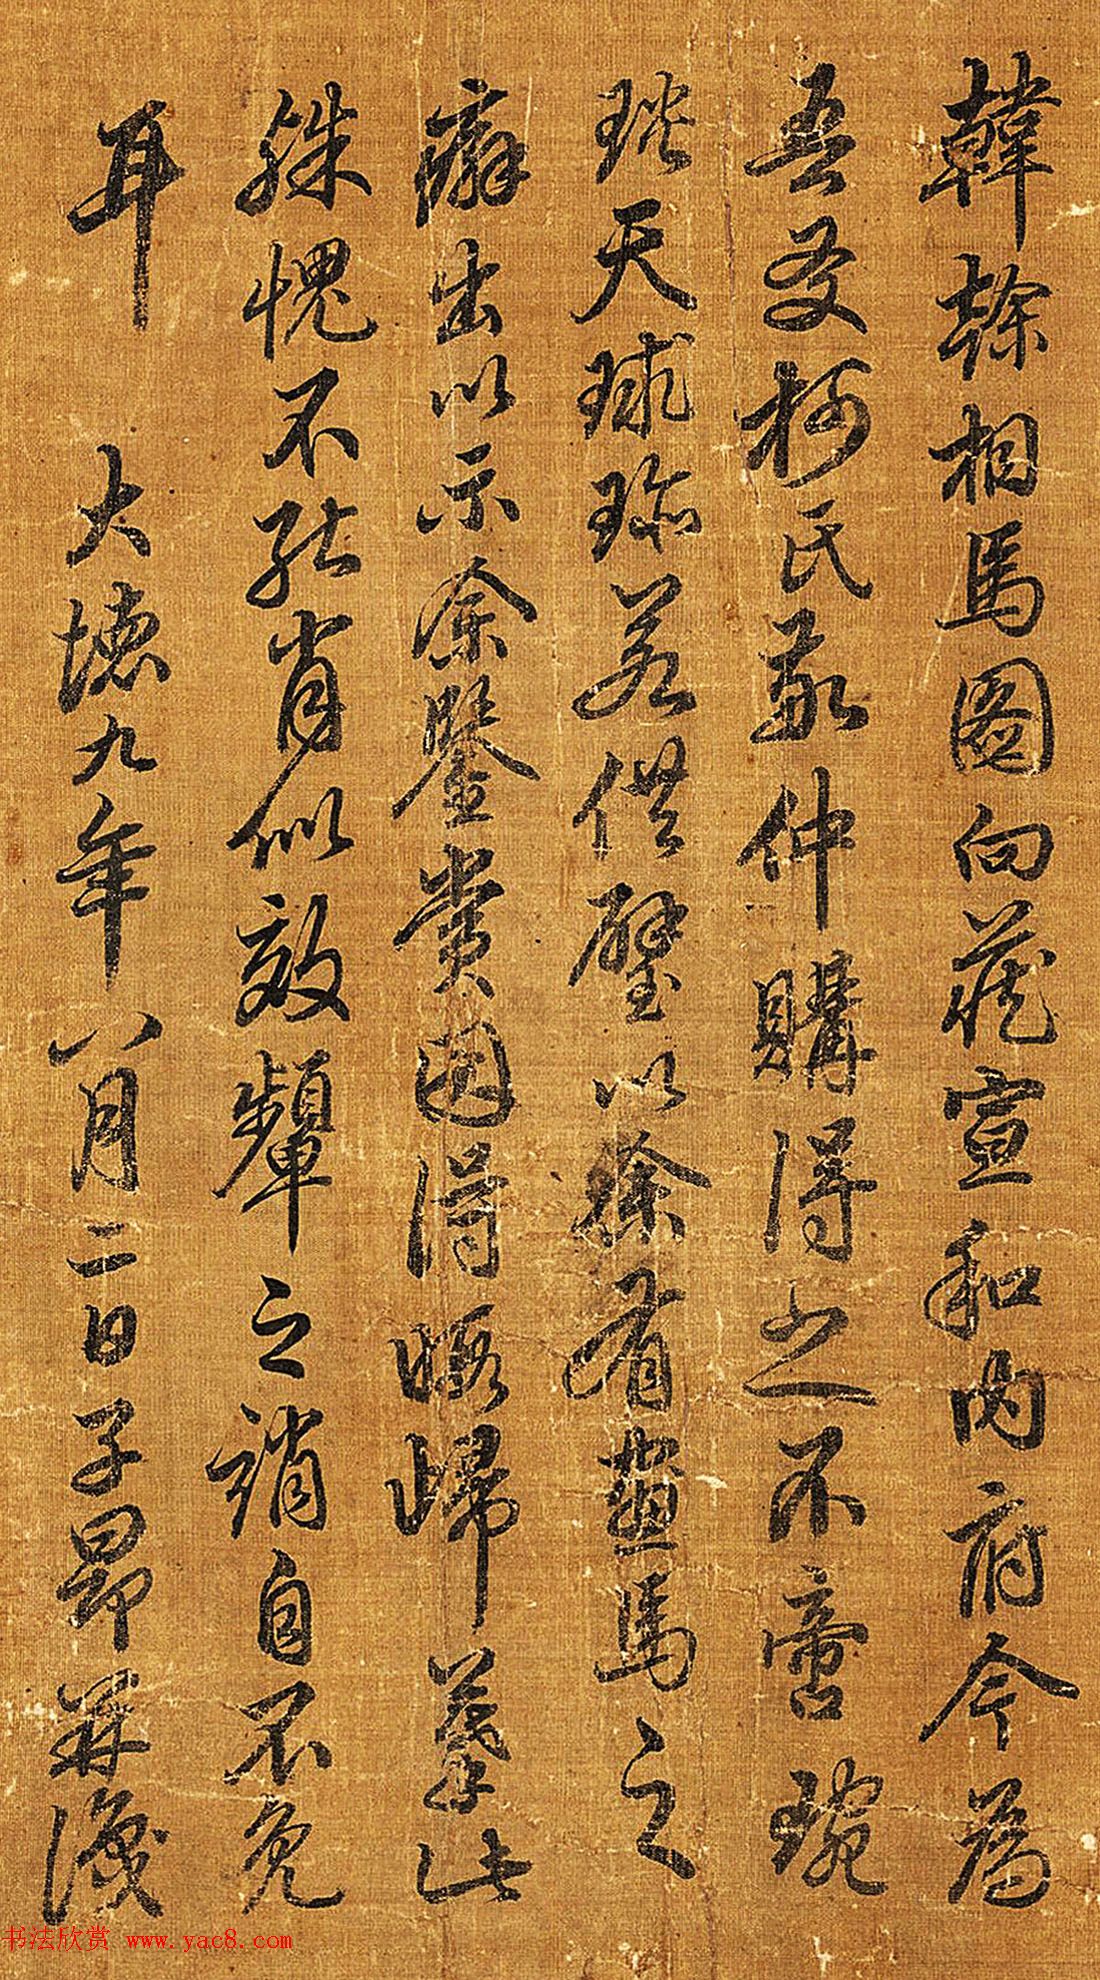 韓幹相馬圖向藏宣和內府今為
吾友柯氏敬仲購得之不啻琬
琰天球珍若供璧以餘有畫馬之
癖出以示余鑒賞因得暇歸摹此
殊愧不能肖似效顰之誚自不免
耳 大德九年八月二日子昂并識
书法欣赏 www.yac8.com